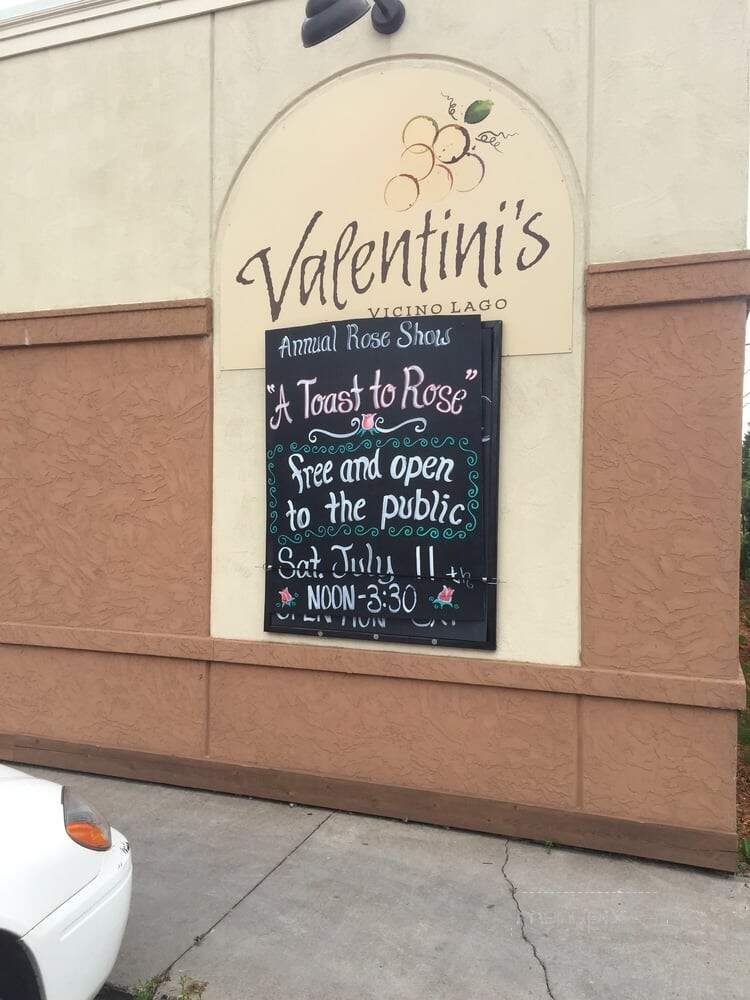 Valentini's
VICINO LAGO
Annual Rose Show
"A Toast to Rose"
free and open
to the public
Sat. July 11th
NOON-3:30